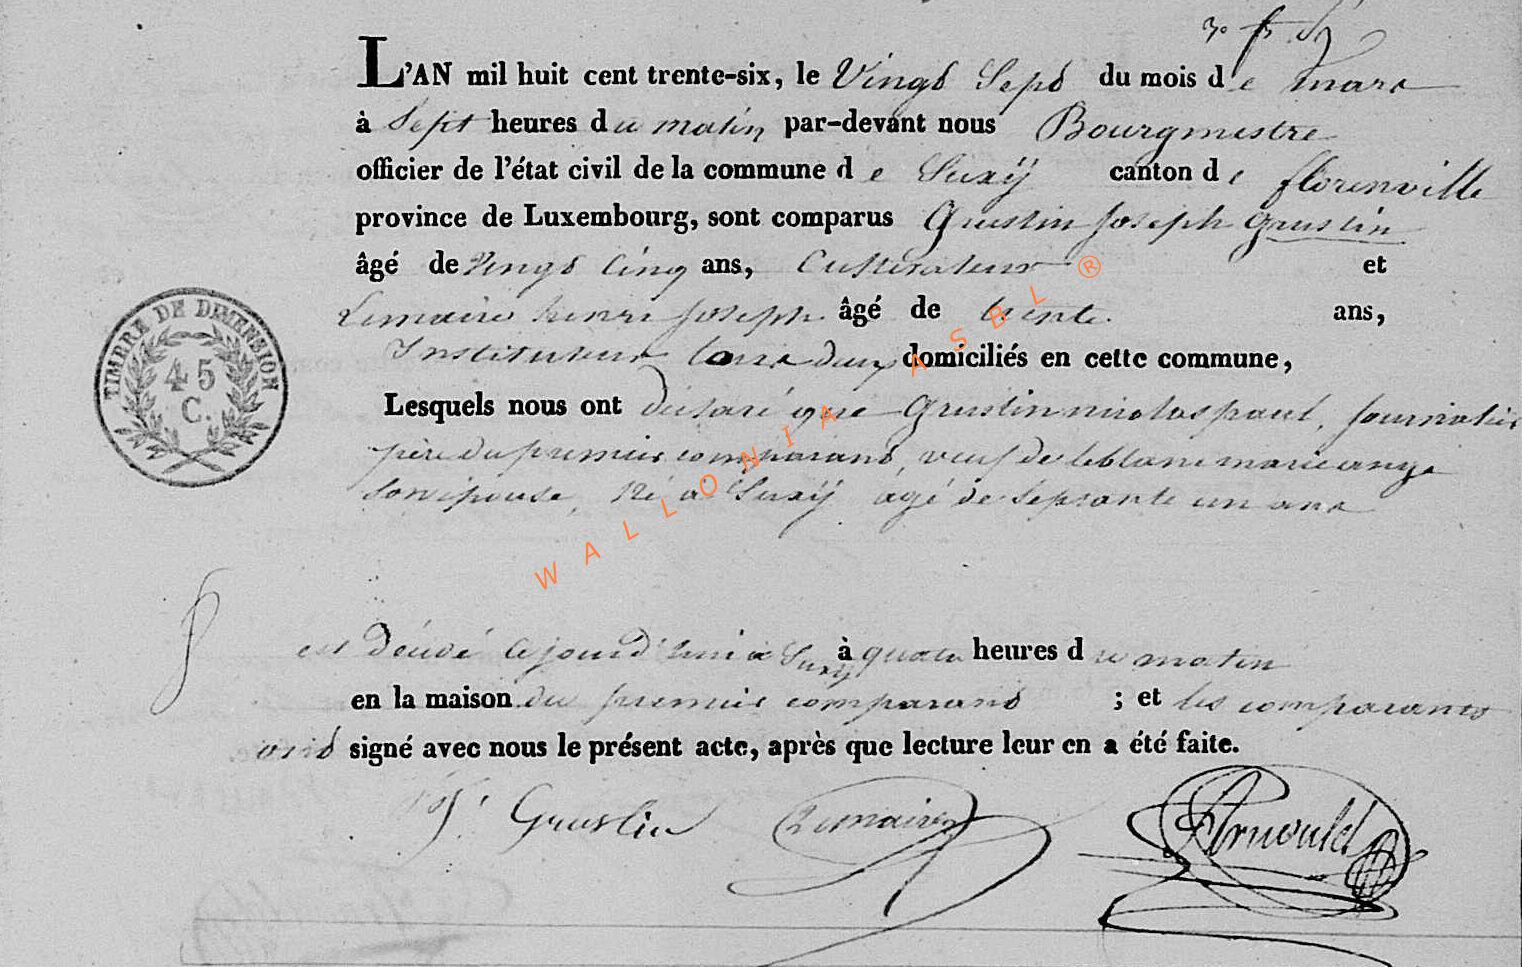 L'AN mil huit cent trente-six, le Vingt Sept du mois de mars
à Sept heures du matin par-devant nous Bourgmestre
officier de l'état civil de la commune de Suxÿ canton de florenville
province de Luxembourg, sont comparus Grustin Joseph Grustin
âgé de Vingt Cinq ans, Cultivateur et
Lemaire henri Joseph âgé de trente ans,
Instituteur tous deux domiciliés en cette commune,
TIMBRE DE DIMENSION
45
C.
Lesquels nous ont déclaré que Grustin nicolas paul, Journalier
père du premier comparant, veuf de leblanc marie ange
Son épouse, Né à Suxÿ agé de Septante un ans
est Décédé Cejourd'hui à Suxÿ à quatre heures du matin
en la maison du premier comparant ; et les comparants
ont signé avec nous le présent acte, après que lecture leur en a été faite.
J. Grustin Lemaire Arnould
WALLONIA ASBL ®